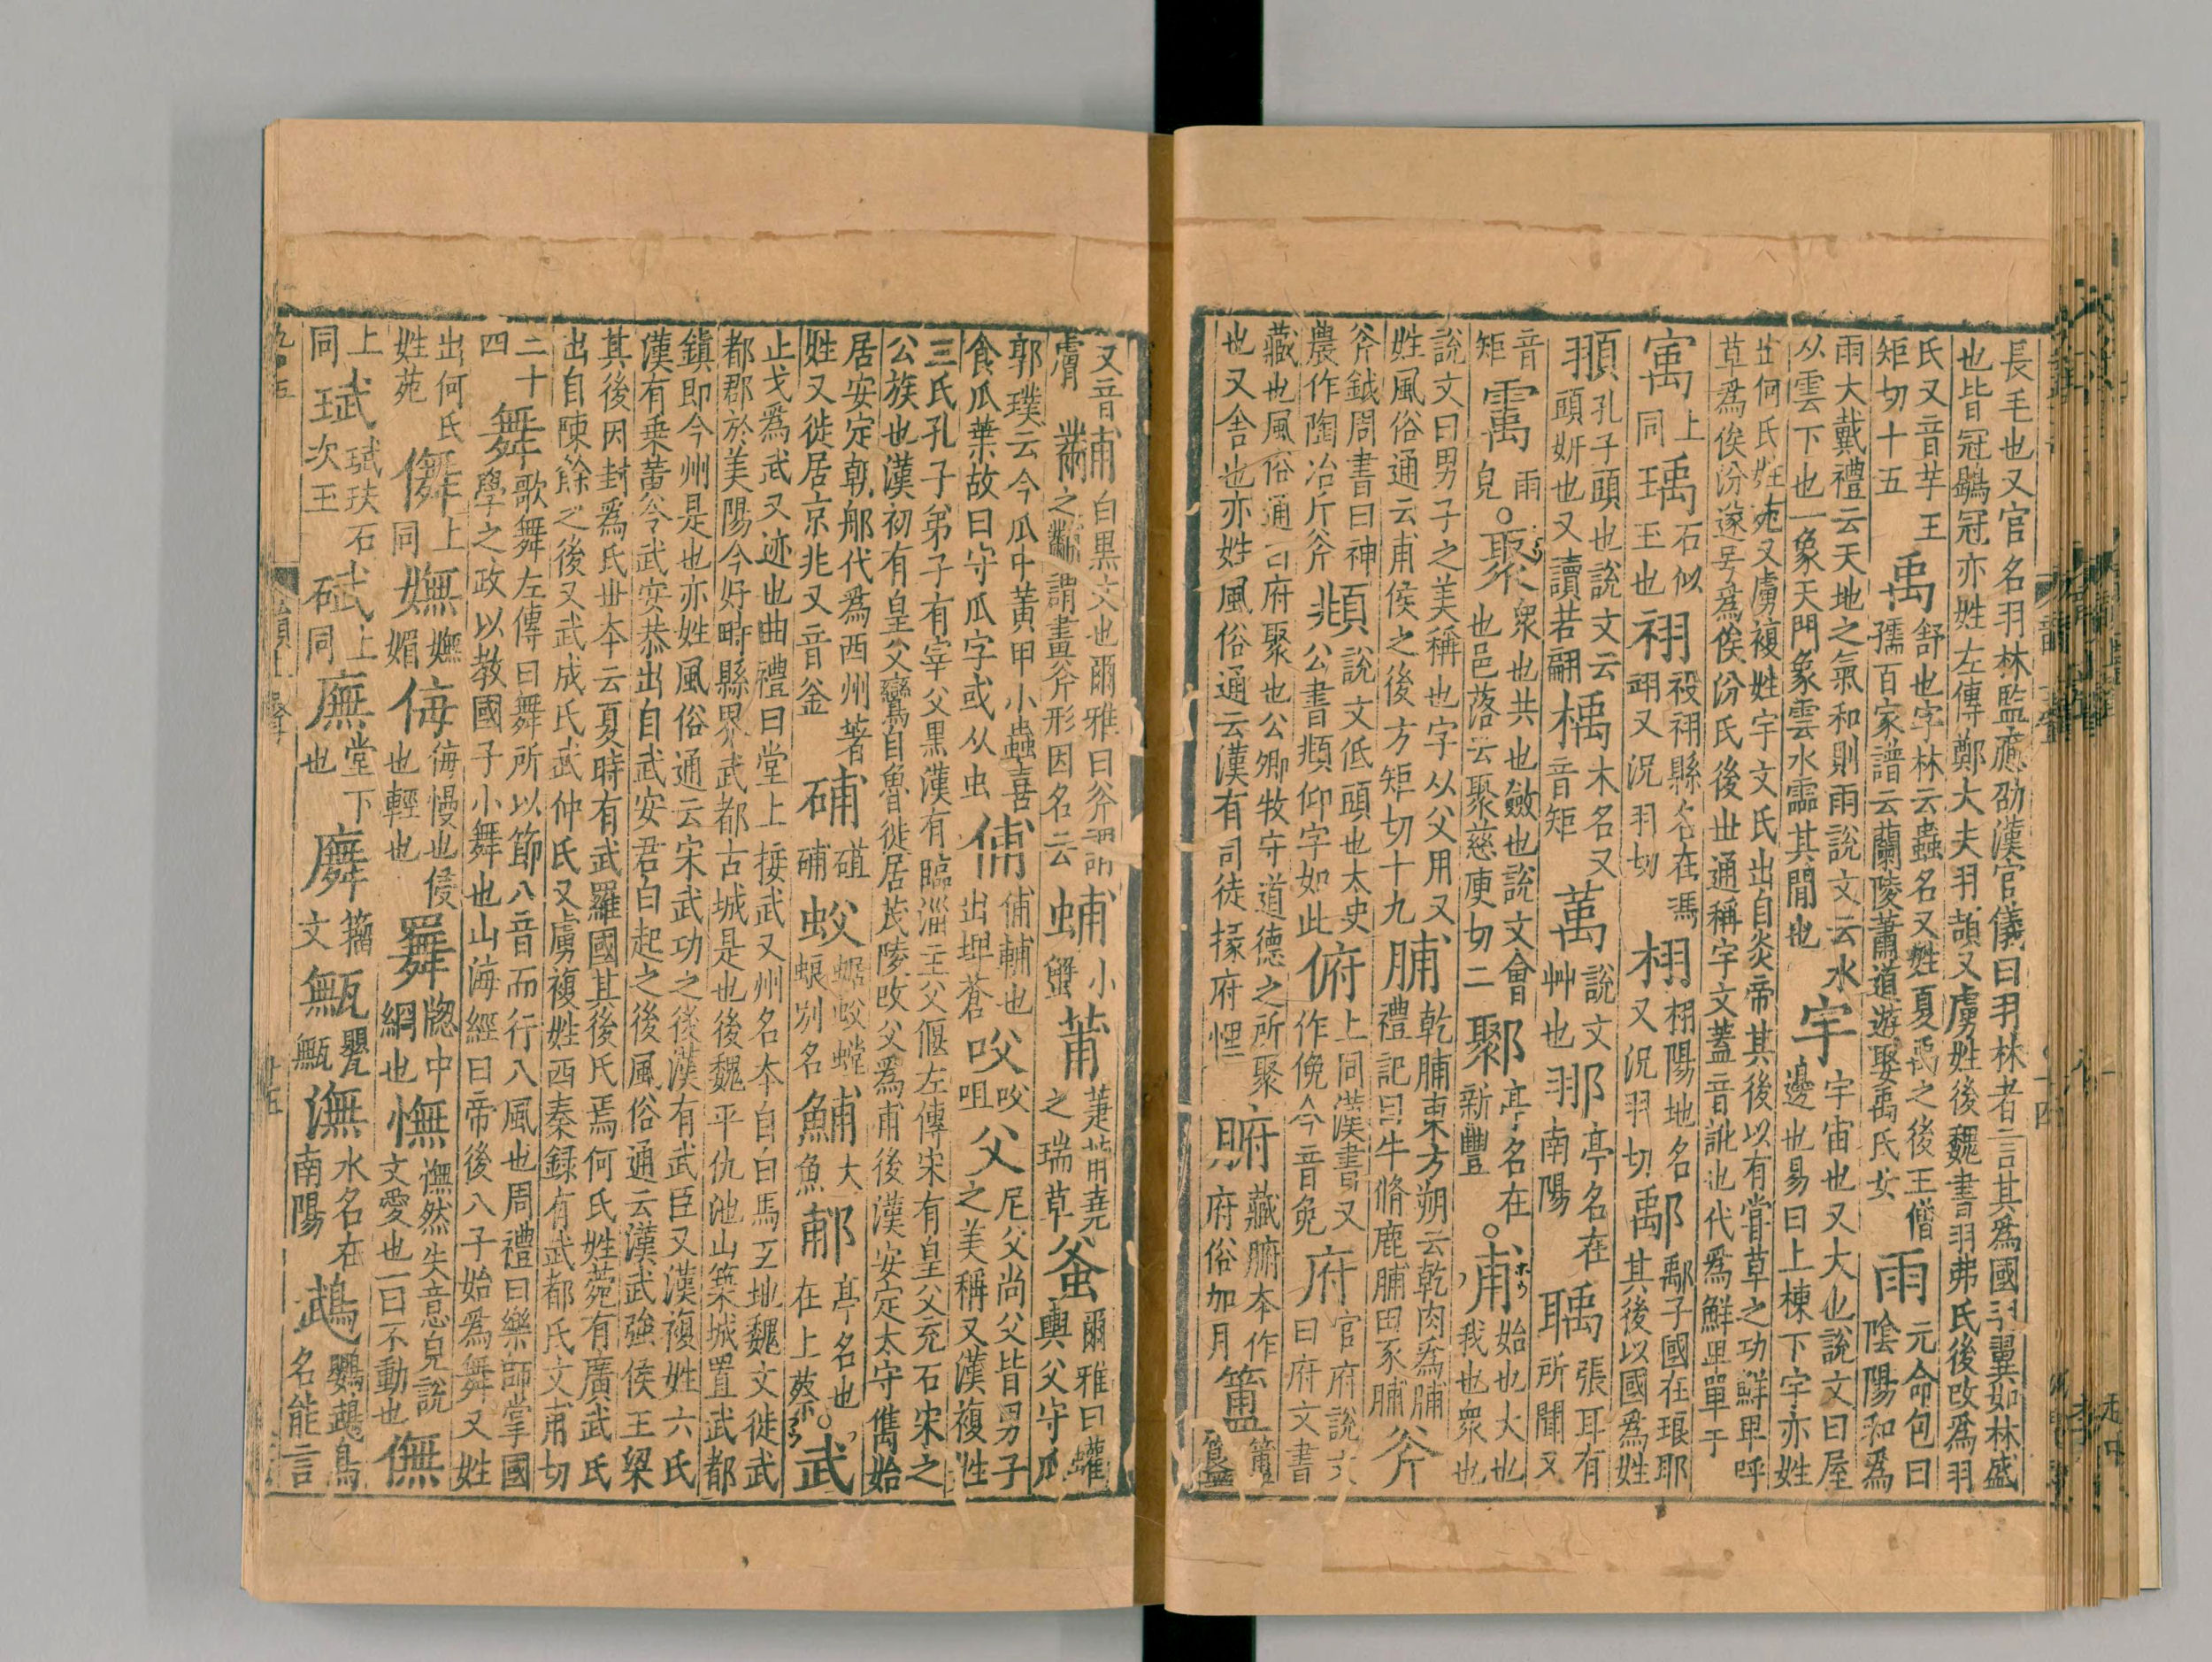 長毛也又官名羽林監應劭漢官儀曰羽林者言其爲國羽翼如林盛
也皆冠鶡冠亦姓左傳鄭大夫羽頡又虜姓後魏書羽弗氏後改爲羽
氏又音芋王矩切十五 禹舒也字林云蟲名又姓夏禹之後王僧孺百家譜云蘭陵蕭道遊娶禹氏女 雨元命包曰陰陽和爲
雨大戴禮云天地之氣和則雨說文云水从雲下也一象天門象雲水霝其間也 宇宇宙也又大也說文曰屋邊也易曰上棟下宇亦姓
出何氏姓苑又虜複姓宇文氏出自炎帝其後以有嘗草之功鮮卑呼
草爲俟汾遂号爲俟汾氏後世通稱宇文蓋音訛也代爲鮮卑單于
㝢上同 瑀石似玉也 祤祋祤縣名在馮翊又況羽切 栩栩陽地名又況羽切 鄅鄅子國在琅耶其後以國爲姓
頨孔子頭也說文云頭妍也又讀若翩 楀木名又音矩 萭說文艸也 𨛭亭名在南陽 聥張耳有所聞又
音矩 䨞雨皃 ○聚衆也共也斂也說文會也邑落云聚慈庾切二 鄹亭名在新豐 ○甫始也大也我也衆也
說文曰男子之美稱也字从父用又姓風俗通云甫侯之後方矩切十九 脯乾脯東方朔云乾肉爲脯禮記曰牛脩鹿脯田豕脯 斧
斧鉞周書曰神農作陶冶斤斧 頫說文低頭也太史公書頫仰字如此 俯上同漢書又作俛今音免 府官府說文曰府文書
藏也風俗通曰府聚也公卿牧守道德之所聚也又舍也亦姓風俗通云漢有司徒掾府悝 腑藏腑本作府俗加月 簠簠簋
又音膚 黼白黑文也爾雅曰斧謂之黼謂畫斧形因名云 蜅小蟹 莆萐莆堯之瑞草 蚥爾雅曰蠸輿父守瓜
郭璞云今瓜中黃甲小蟲喜食瓜葉故曰守瓜字或从虫 俌俌輔也出埤蒼 㕮㕮咀 父尼父尚父皆男子之美稱又漢複姓
三氏孔子弟子有宰父黑漢有臨淄主父偃左傳宋有皇父充石宋之
公族也漢初有皇父鸞自魯徙居茂陵改父爲甫後漢安定太守儁始
居安定朝𨚗代爲西州著姓又徙居京兆又音釜 𥓲𥓲碹 蚥蟾蚥螳蜋別名 鯆大魚 郙亭名在上蔡 ○武
止戈爲武又迹也曲禮曰堂上接武又州名本自白馬氐地魏文徙武
都郡於美陽今好畤縣界武都古城是也後魏平仇池山築城置武都
鎮即今州是也亦姓風俗通云宋武功之後漢有武臣又漢複姓六氏
漢有乘黃令武安恭出自武安君白起之後風俗通云漢武強侯王梁
其後因封爲氏世本云夏時有武羅國其後氏焉何氏姓苑有廣武氏
出自陳餘之後又武成氏武仲氏又虜複姓西秦録有武都氏文甫切
二十四 舞歌舞左傳曰舞所以節八音而行八風也周禮曰樂師掌國學之政以教國子小舞也山海經曰帝後八子始爲舞又姓
出何氏姓苑 儛上同 嫵嫵媚 侮侮慢也侵也輕也 𦌬牕中網也 憮憮然失意皃說文愛也一曰不動也 𠌥
上同 珷珷玞石次玉 碔上同 廡堂下也 廡籀文 甒甖甒 潕水名在南陽 鵡鸚鵡鳥名能言